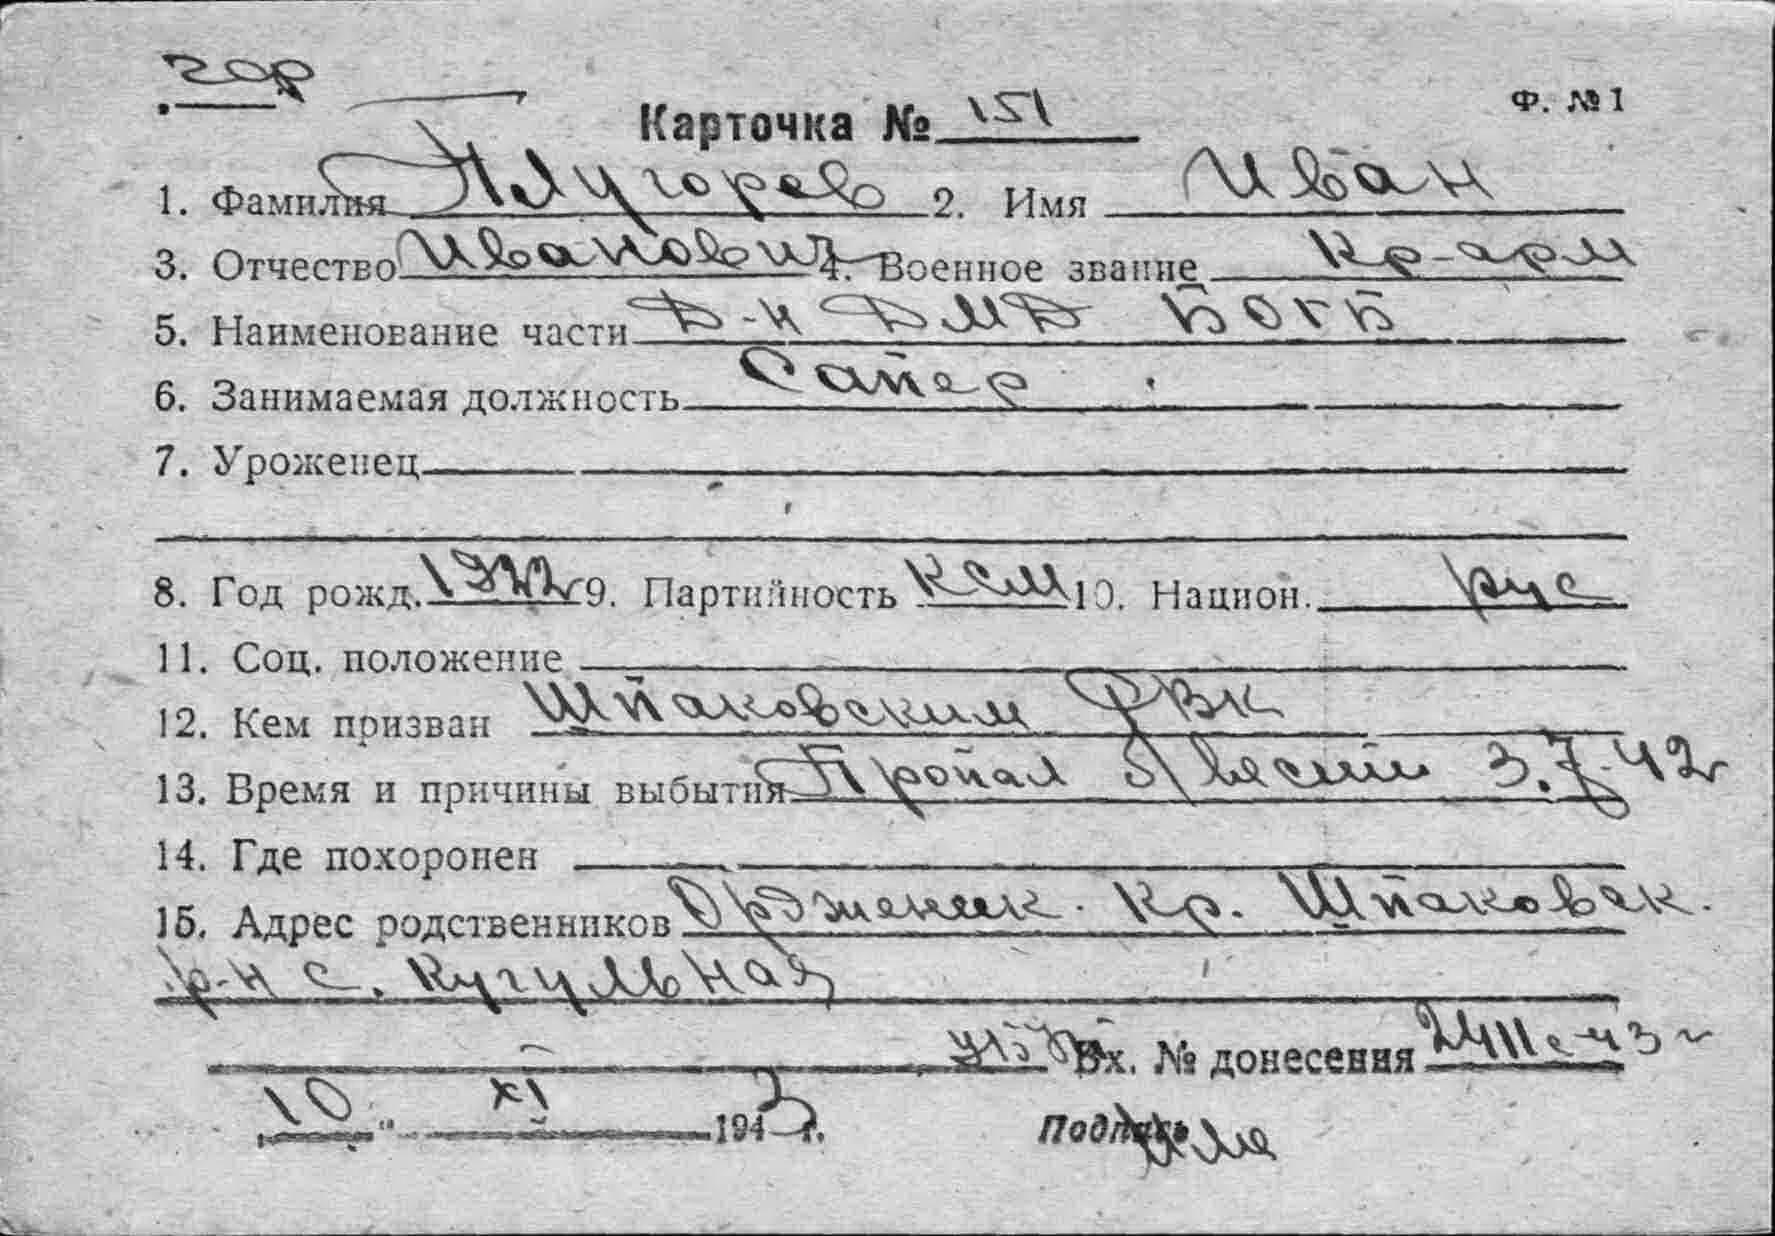 Ф. № 1
Карточка № 151
1. Фамилия Плугорев 2. Имя Иван
3. Отчество Иванович 4. Военное звание Кр-арм
5. Наименование части
6. Занимаемая должность Сапер
7. Уроженец
8. Год рожд. 1922 г 9. Партийность КСМ 10. Национ. рус
11. Соц. положение
12. Кем призван Шпаковским РВК
13. Время и причины выбытия Пропал б/вести 3.7.42 г
14. Где похоронен
15. Адрес родственников Орджоник. Кр. Шпаковск.
р-н с. Кугульная
Вх. № донесения 2411с-43 г
10 " XI 1943 г. Подпись